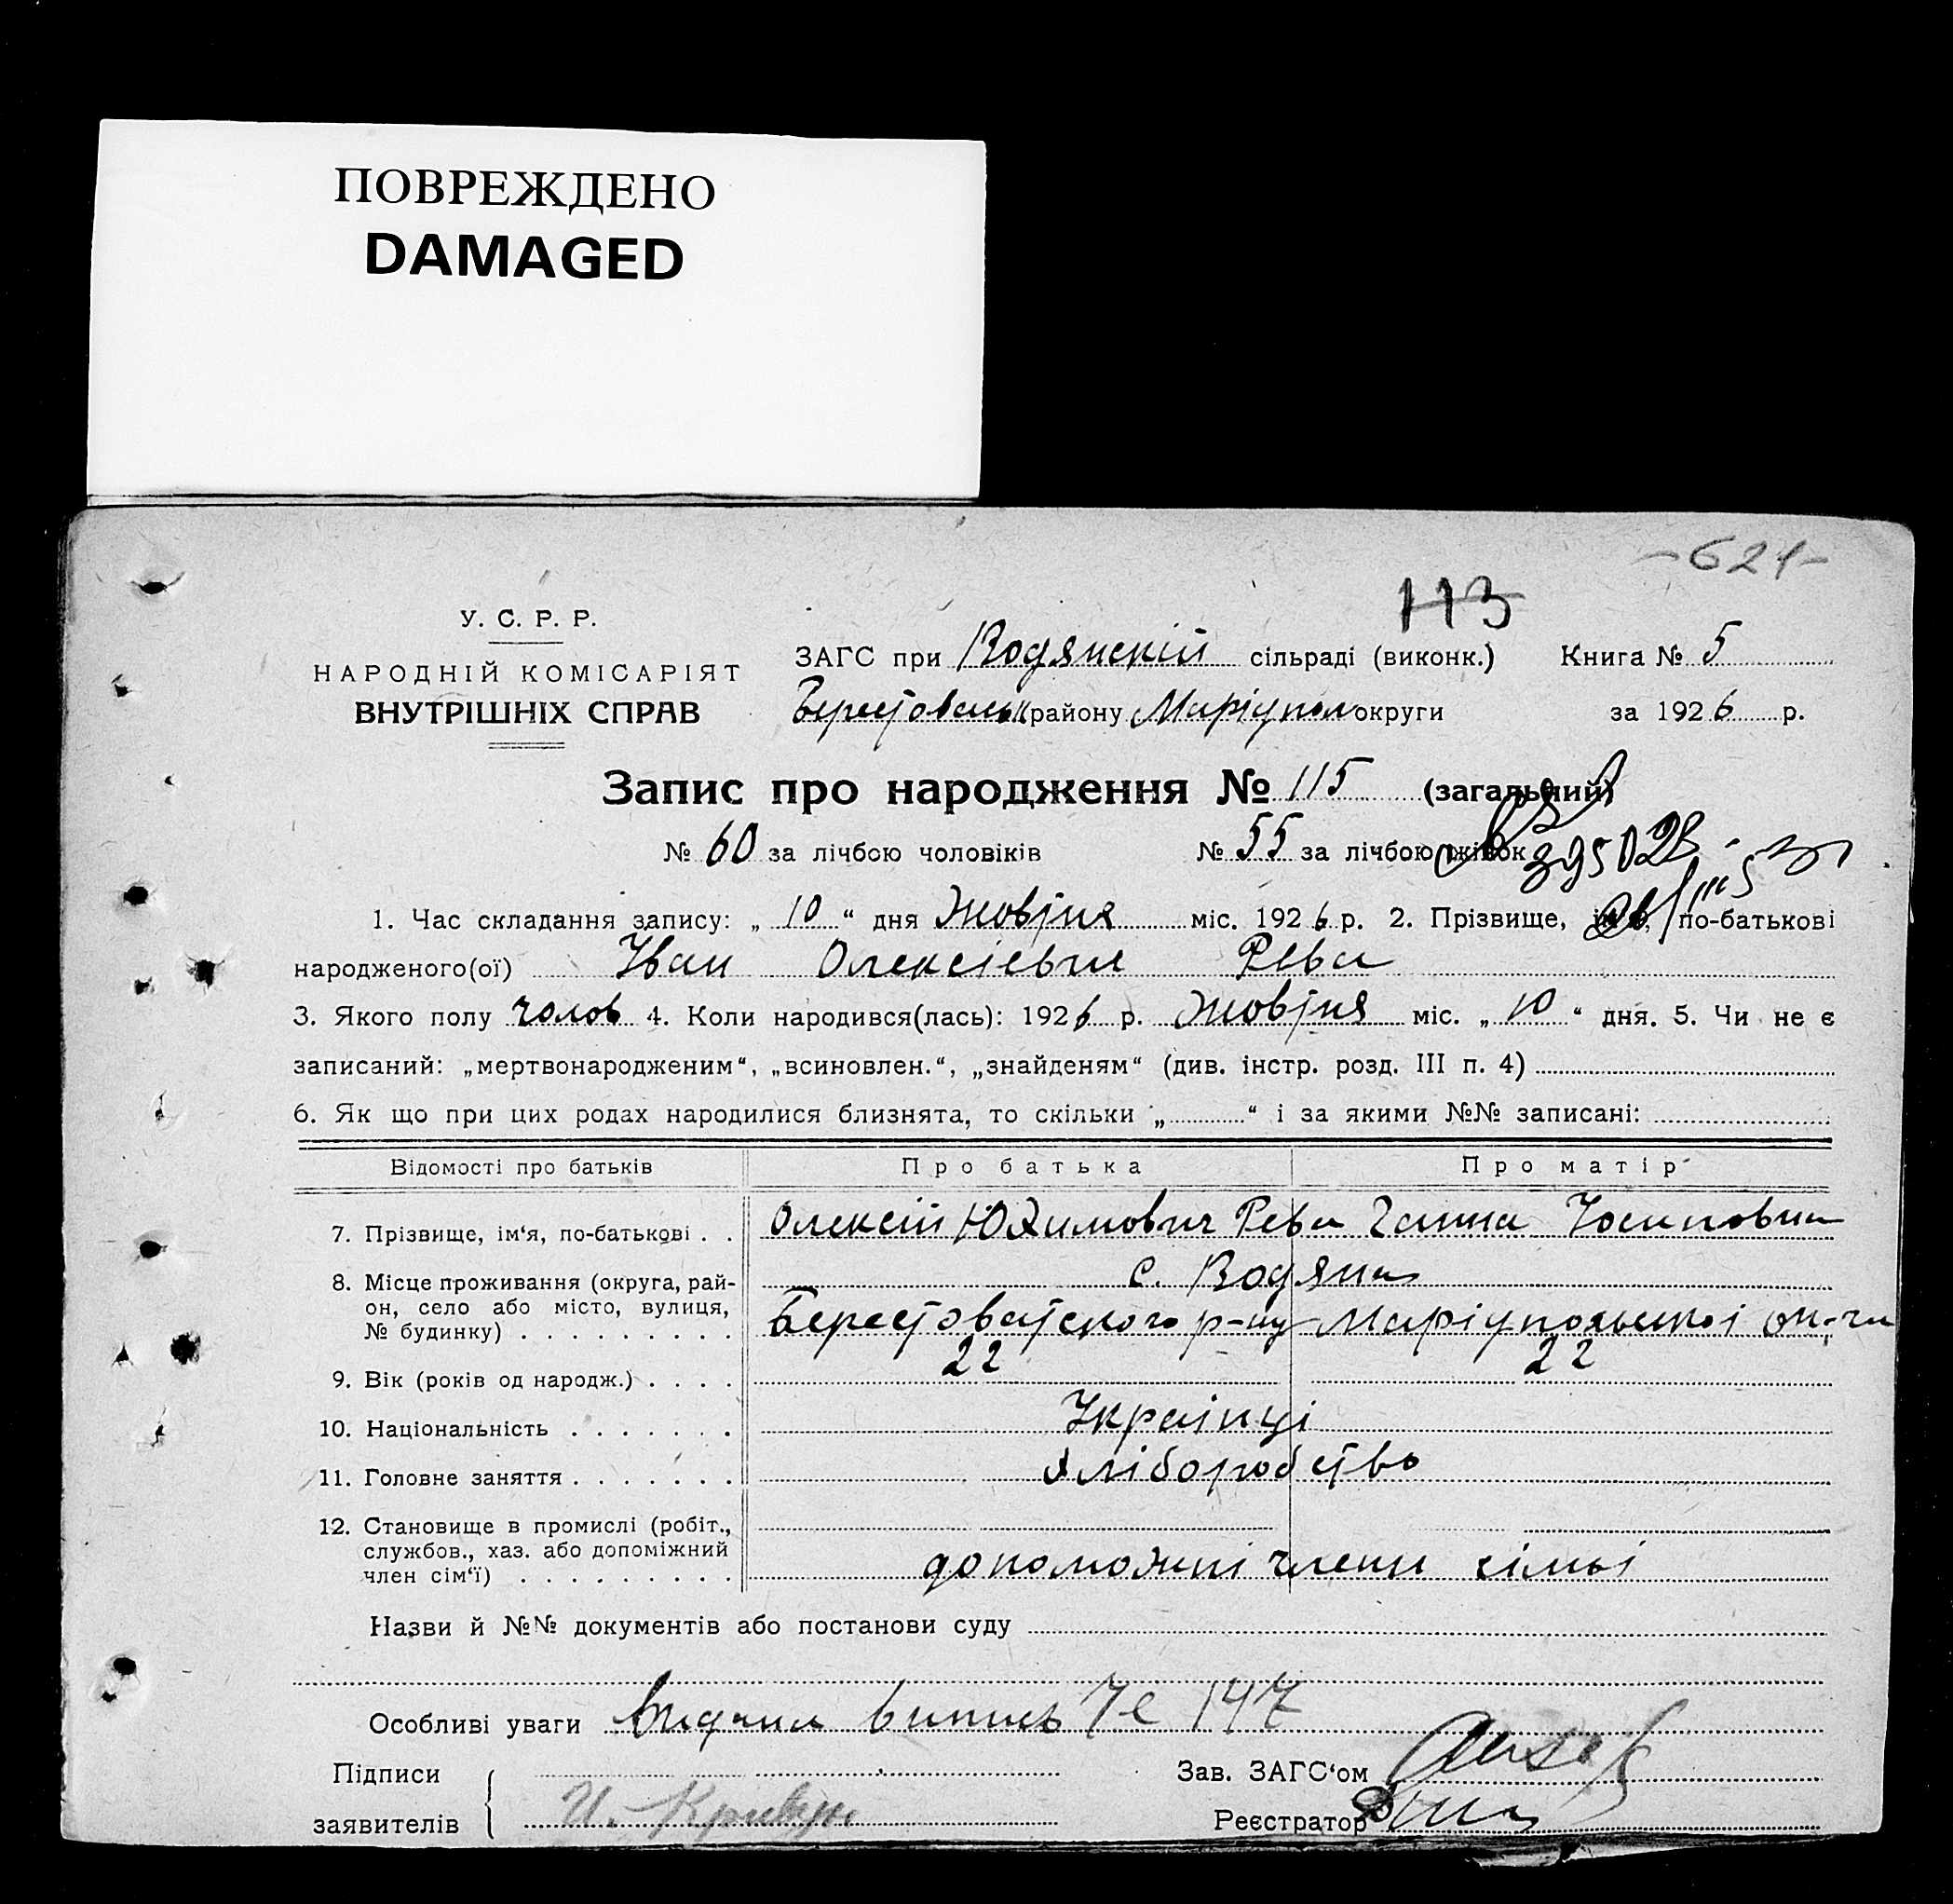 ПОВРЕЖДЕНО
DAMAGED
-621-
113
У. С. Р. Р.
НАРОДНІЙ КОМІСАРІЯТ
ВНУТРІШНІХ СПРАВ
ЗАГС при Водянскій сільраді (виконк.) Книга № 5
Берестовськ району Маріупол округи за 1926 р.
Запис про народження № 115 (загальний)
№ 60 за лічбою чоловіків № 55 за лічбою жінок
1. Час складання запису: „ 10 “ дня Жовтня міс. 1926 р. 2. Прізвище, ім'я, по-батькові
народженого(ої) Іван Олексієвич Рева
3. Якого полу чолов 4. Коли народився(лась): 1926 р. Жовтня міс. „ 10 “ дня. 5. Чи не є
записаний: „мертвонародженим“, „всиновлен.“, „знайденям“ (див. інстр. розд. III п. 4)
6. Як що при цих родах народилися близнята, то скільки „ “ і за якими №№ записані:
Відомості про батьків Про батька Про матір
7. Прізвище, ім‘я, по-батькові . . Олексій Юхимович Рева Ганна Йосиповна
8. Місце проживання (округа, рай-
он, село або місто, вулиця,
№ будинку) . . . . . . . . .
с. Водяна
Берестоватского р-ну Маріупольської ок-ги
9. Вік (років од народж.) . . . . 22 22
10. Національність . . . . . . . Українці
11. Головне заняття . . . . . . . хліборобство
12. Становище в промислі (робіт.,
службов., хаз. або допоміжний
член сім‘ї) . . . . . . . . . допоможні члени сімьі
Назви й №№ документів або постанови суду
Особливі уваги видана випись № 147
Підписи
заявителів
И. Кривун
Зав. ЗАГС‘ом
Реєстратор